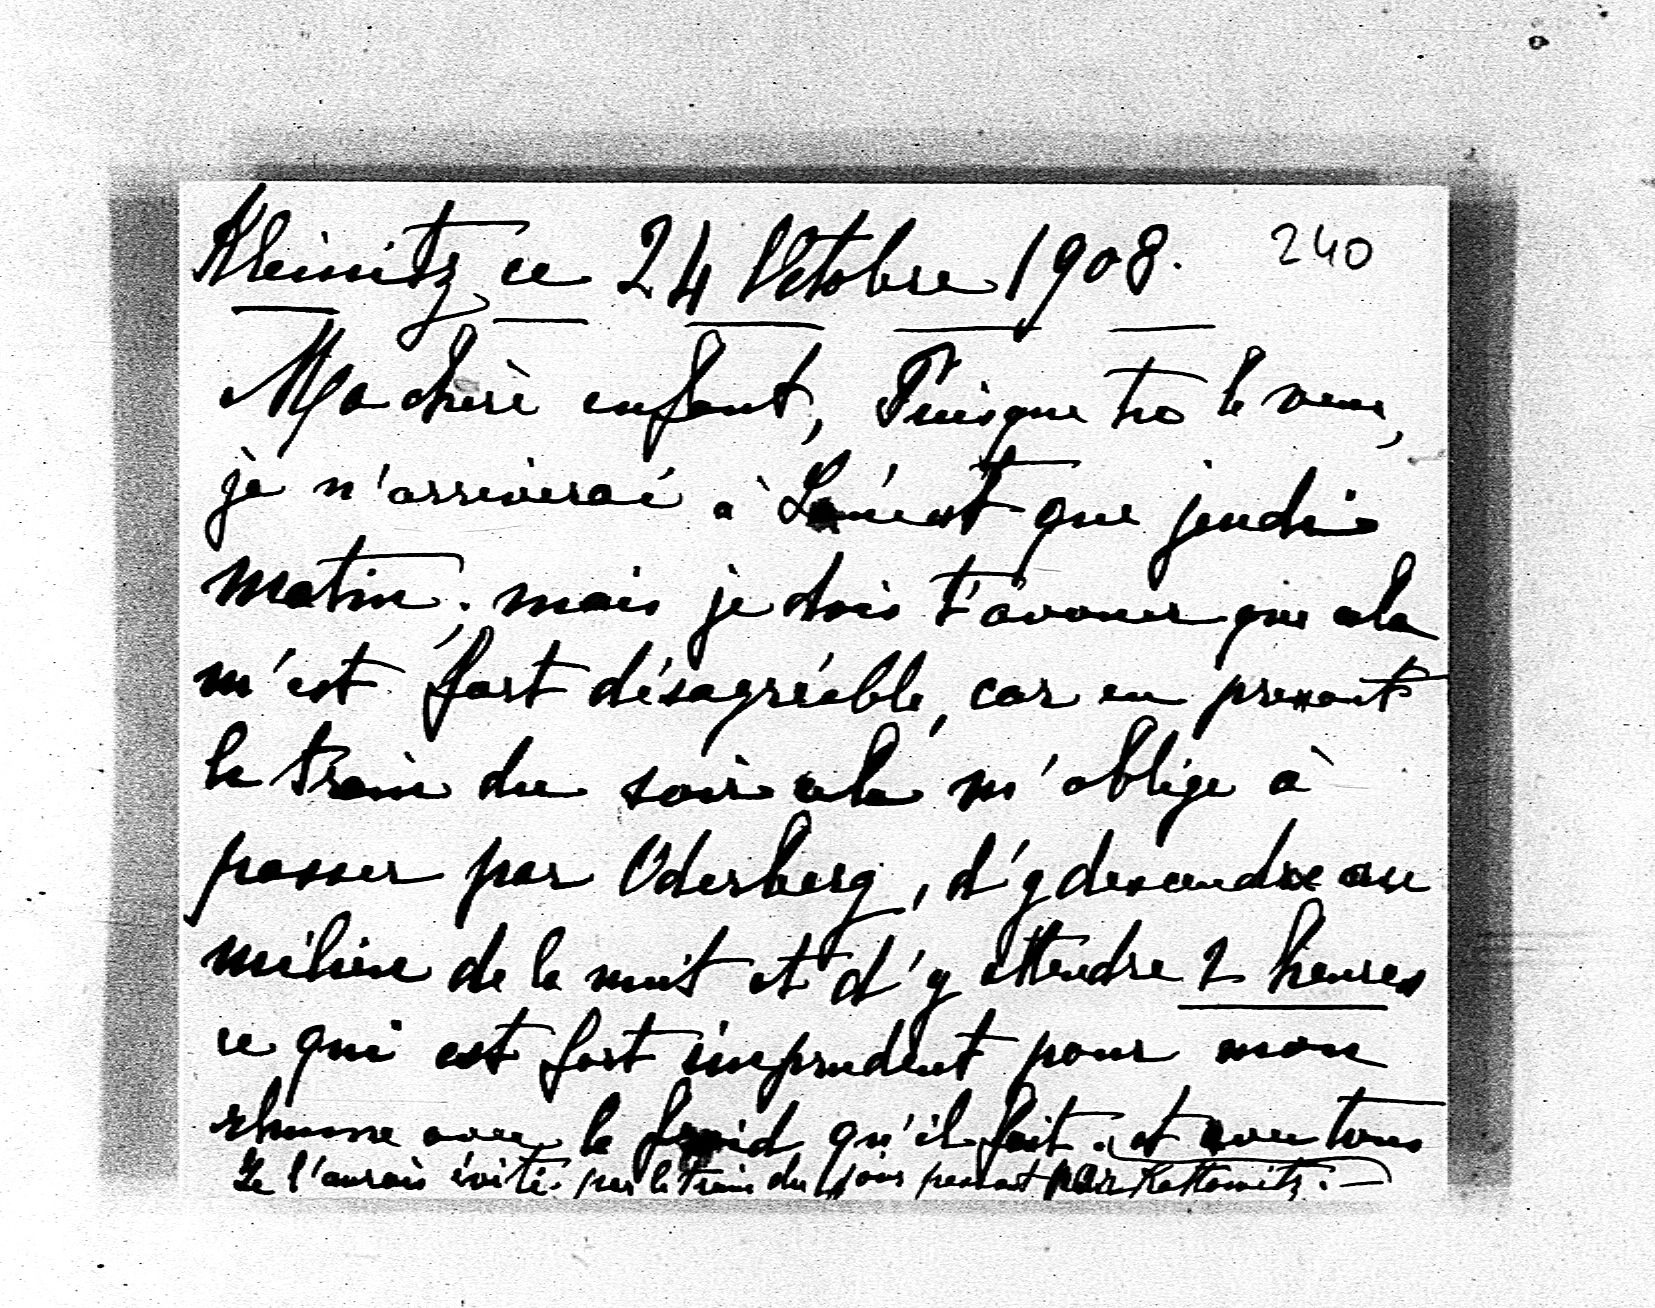 Kleinitz ce 24 Octobre 1908. 240
Ma chère enfant, Puisque tu le veux,
je n'arriverai à Lancut que jeudi
matin; mais je dois t'avouer que cela
m'est fort désagréable, car en prenant
le train du soir cela m'oblige à
passer par Oderberg, d'y descendre au
milieu de la nuit et d'y attendre 2 heures
ce qui est fort imprudent pour mon
rhume avec le froid qu'il fait. et avec tous
Je l'aurais évité par le train du jour passant par Kattowitz.